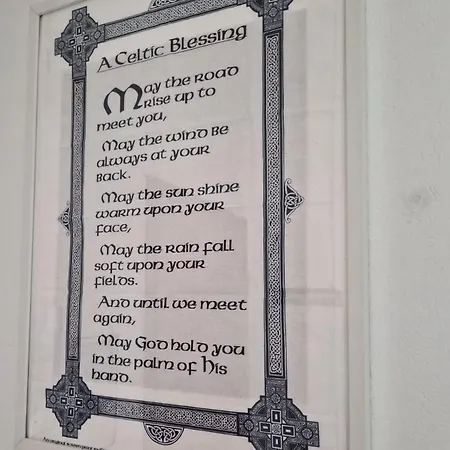 A Celtic Blessing
May the road
rise up to
meet you,
May the wind be
always at your
back.
May the sun shine
warm upon your
face,
May the rain fall
soft upon your
fields.
And until we meet
again,
May God hold you
in the palm of His
hand.